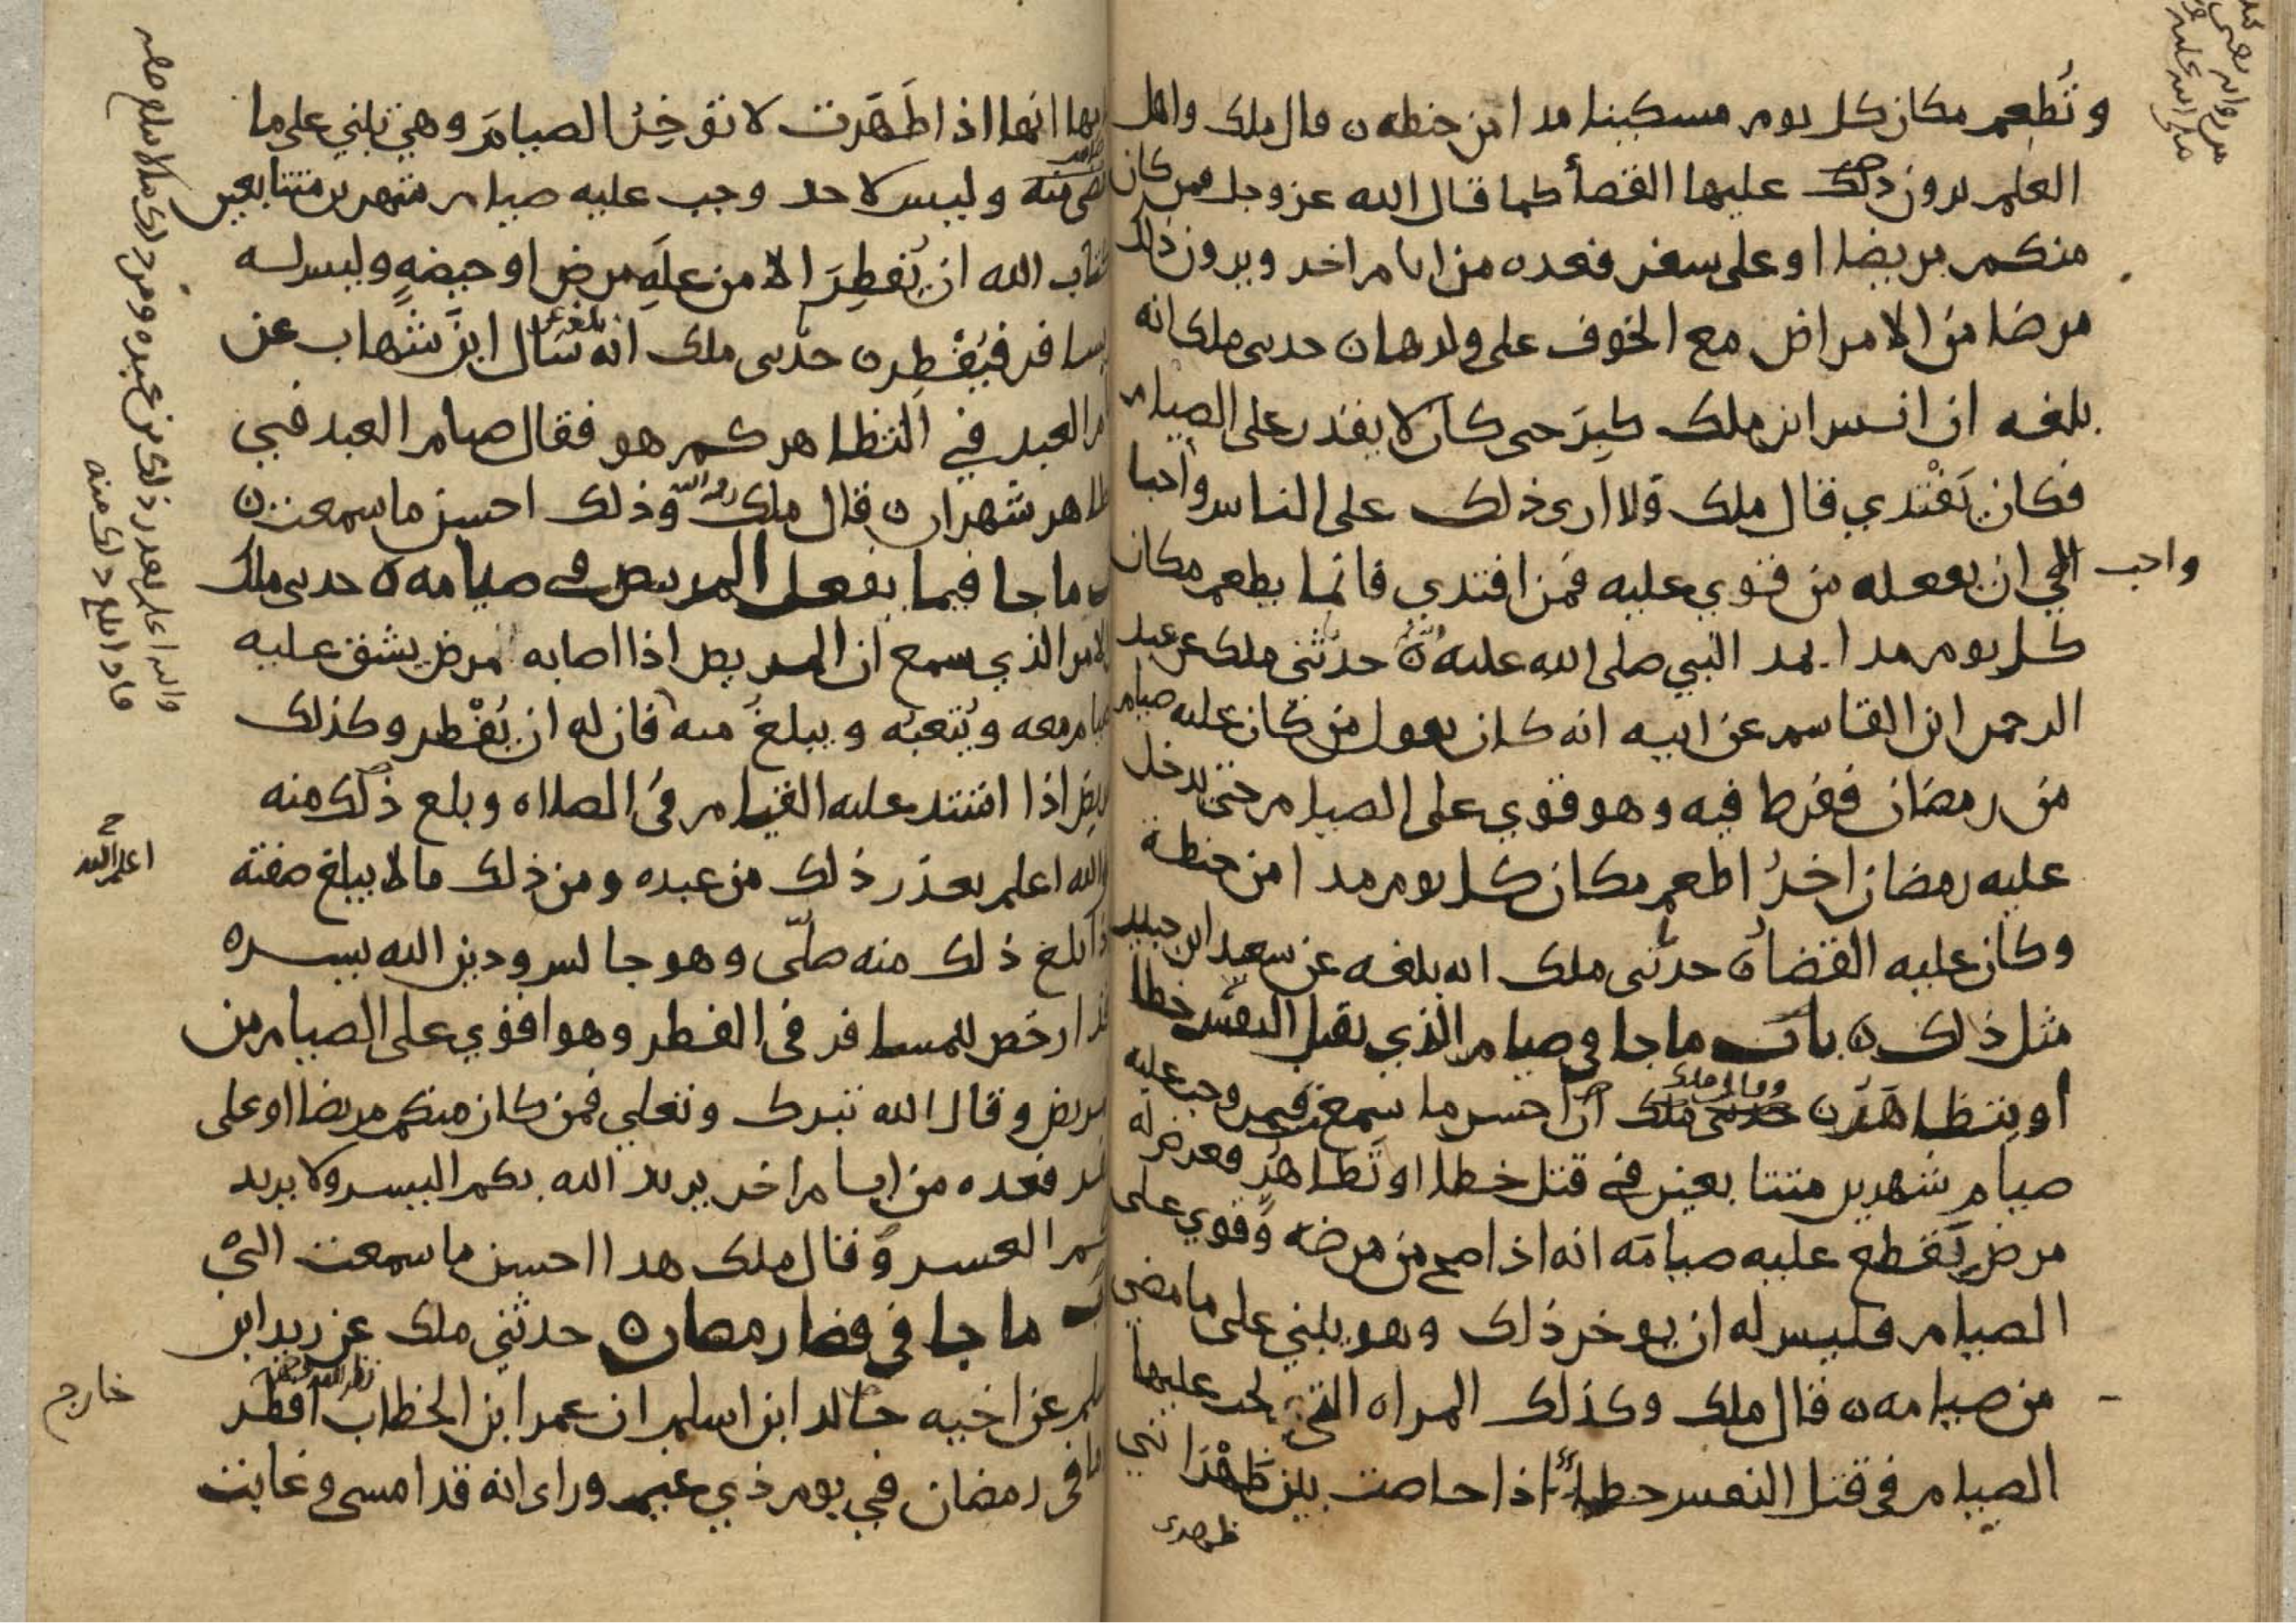 وتُطعم مكان كل يوم مسكينا مدا من حنطه ن قال ملك واهل
العلم يرون ذلك عليها القضأ كما قال الله عز وجل فمن كان
منكم مريضا او على سفر فعده من ايام اخر ويرون ذلك
مرضا من الامراض مع الخوف على ولدها ن حدىى ملك انه
بلغه ان انس ابن ملك كبِرَ حىى كان لا يقدر على الصيام
فكان يَفْتدي قال ملك ولا ارى ذلك على الناس واجبا
الي ان يفعله من قوي عليه فمن افتدي فانما يطعم مكان
واحب
كل يوم مدا بمد النبي صلى الله عليه ن حدثنى ملك عن عبد
الرحمن ابن القاسم عن ابيه انه كان يقول من كان عليه صيام
من رمضان ففرط فيه وهو قوي على الصيام حتى يدخل
عليه رمضان اخرُ اطعم مكان كل يوم مدا من حنطة
وكان عليه القضاُ ن حدثنى ملك انه بلغه عن سعيد ابن جبير
مثل ذلك ن باب ما جا في صيام الذي يقتل النفس خطا
او يتظاهر ن حدثنى ملك ان احسن ما سمعت فيمن وجب عليه
وقال ملك
صيام شهرين متتابعين في قتل خطا او تَظاهُرٍ فعرض له
مرض يَقطع عليه صيامَه انه اذا صح من مرضه وَقوي على
الصيام فليس له ان يوخر ذلك وهو يبني على ما مضي
من صيامه ن قال ملك وكذلك المراه التي يجب عليها
الصيام في قتل النفس خطاءً اذا حاضت بين ظَهْرَانَي
ظهرى
انها اذا طَهَرت لا تؤخِرُ الصيامَ وهي تبني على ما
منه وليس لاحد وجب عليه صيام شهرين متتابعين
كتاب الله ان يُفطِرَ الا من عِلهِ مرضٍ او حيضهٍ وليس له
يسافر فيُفْطِر ن حدثى ملك انه سال ابن شهاب عن
بلغه عن
العبد في التظاهر كم هو فقال صيام العبد في
ظاهر شهران ن قال ملك وذلك احسن ما سمعت ن
رحمه الله
ما جا فيما يفعل المريض في صيامه ن حدىى ملك
الامر الذي سمع ان المريض اذا اصابه مرض يشق عليه
صيام معه ويُتعبُه ويبلغ منه فان له ان يُفْطر وكذلك
المريض اذا اشتد عليه القيام في الصلاه وبلغ ذلك منه
والله اعلم بعذر ذلك من عبده ومن ذلك ما لا يبلغ صفته
اعلم الله
اذا بلغ ذلك منه صلّى وهو جالس ودين الله يسره
ارخص للمسافر في الفطر وهو اقوي على الصيام من
مريض وقال الله تبرك وتعلى فمن كان منكم مريضا او على
سفر فعده من ايام اخر يريد الله بكم اليسر ولا يريد
بكم العسر وَقال ملك هدا احسن ما سمعت الىْ
ما جا في قضا رمضان ن حدثني ملك عن زيد ابن
اسلم عن اخيه خالد ابن اسلم ان عمر ابن الخطاب افطر
خارج
في رمضان في يوم ذي غيم وراى انه قد امسى وغابت